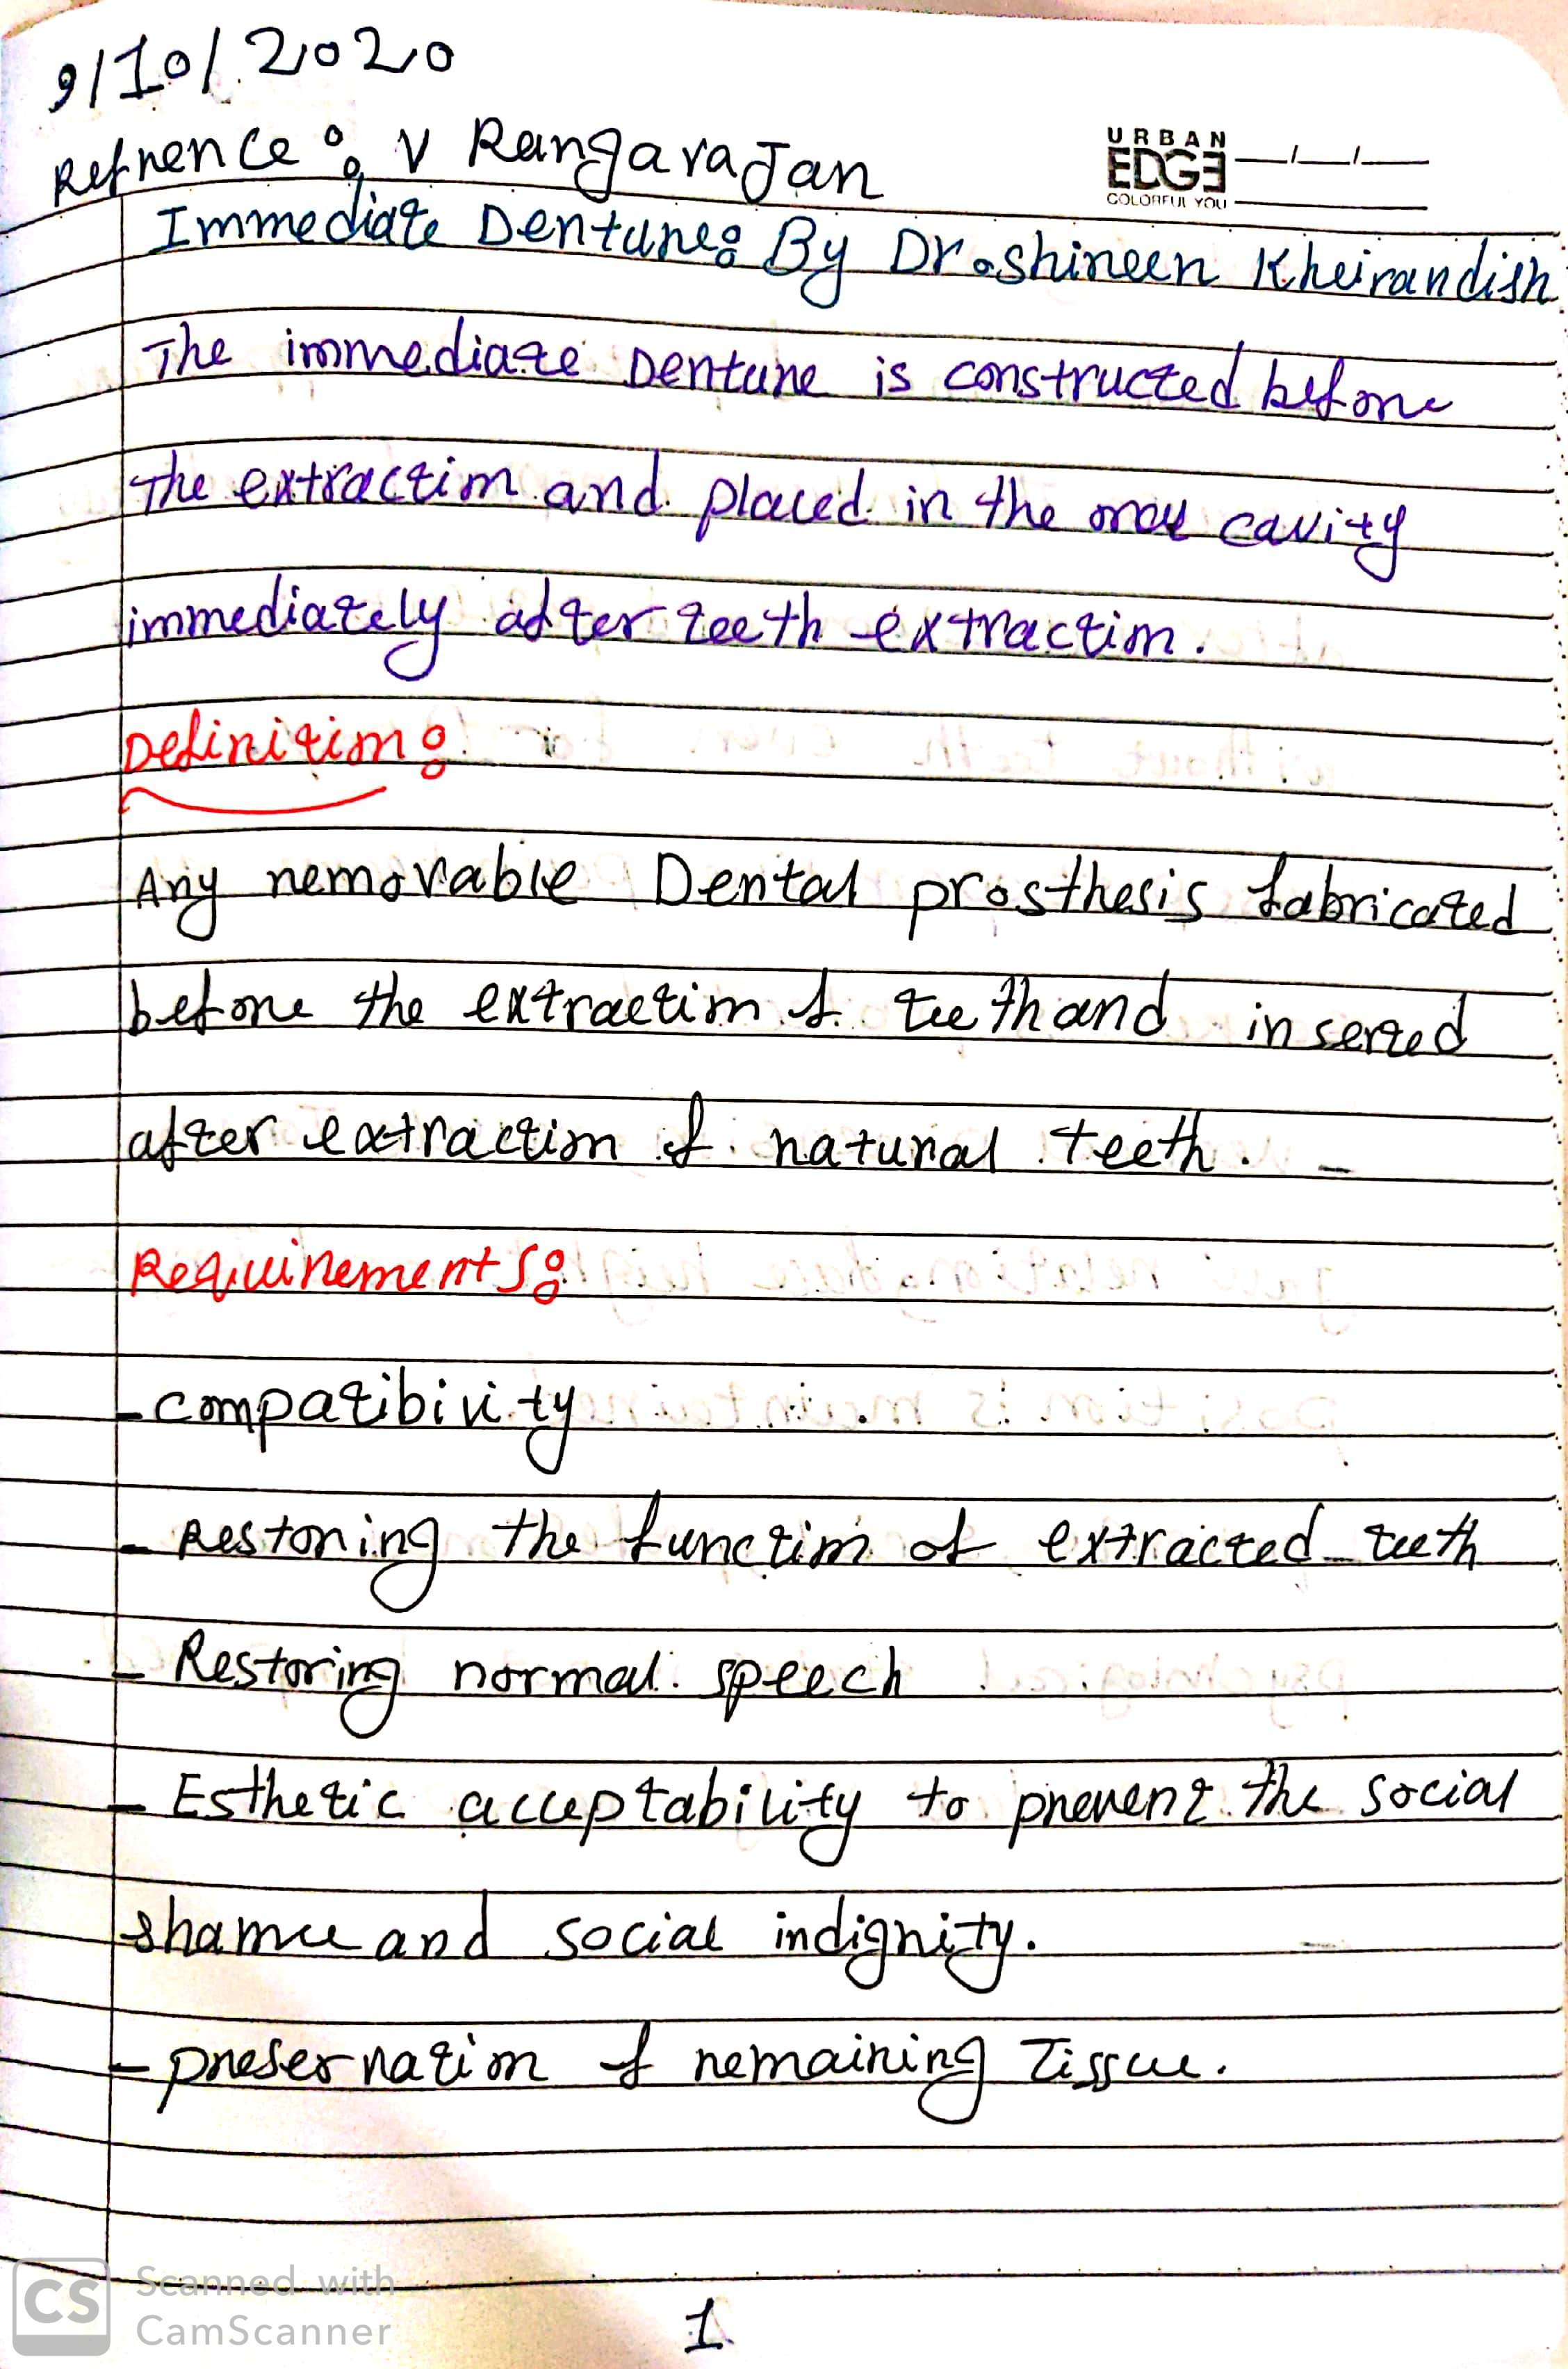 9/10/2020
Refrence: V Rangarajan
URBAN
EDGE
COLORFUL YOU
Immediate Denture: By Dr. shireen Kheirandish
The immediate Denture is constructed before
the extraction and placed in the oral cavity
immediately after teeth extraction.
Definition:
Any removable Dental prosthesis fabricated
before the extraction of teeth and inserted
after extraction of natural teeth.
Requirements:
- compatibility
- Restoring the function of extracted teeth
- Restoring normal speech
- Esthetic acceptability to prevent the social
shame and social indignity.
- preservation of remaining Tissue.
CS Scanned with
CamScanner
1